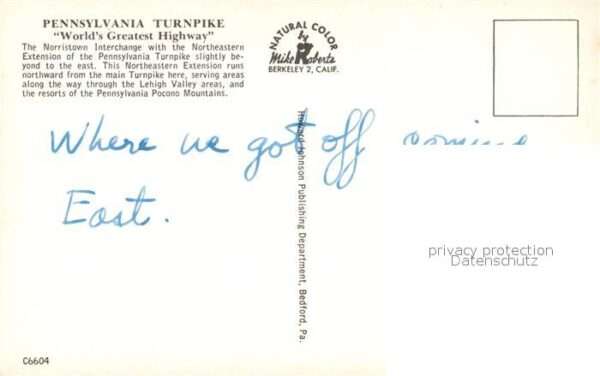 PENNSYLVANIA TURNPIKE
"World's Greatest Highway"
The Norristown Interchange with the Northeastern
Extension of the Pennsylvania Turnpike slightly be-
yond to the east. This Northeastern Extension runs
northward from the main Turnpike here, serving areas
along the way through the Lehigh Valley areas, and
the resorts of the Pennsylvania Pocono Mountains.
NATURAL COLOR
by
Mike Roberts
BERKELEY 2, CALIF.
Where we got off
East.
Howard Johnson Publishing Department, Bedford, Pa.
privacy protection
Datenschutz
C6604